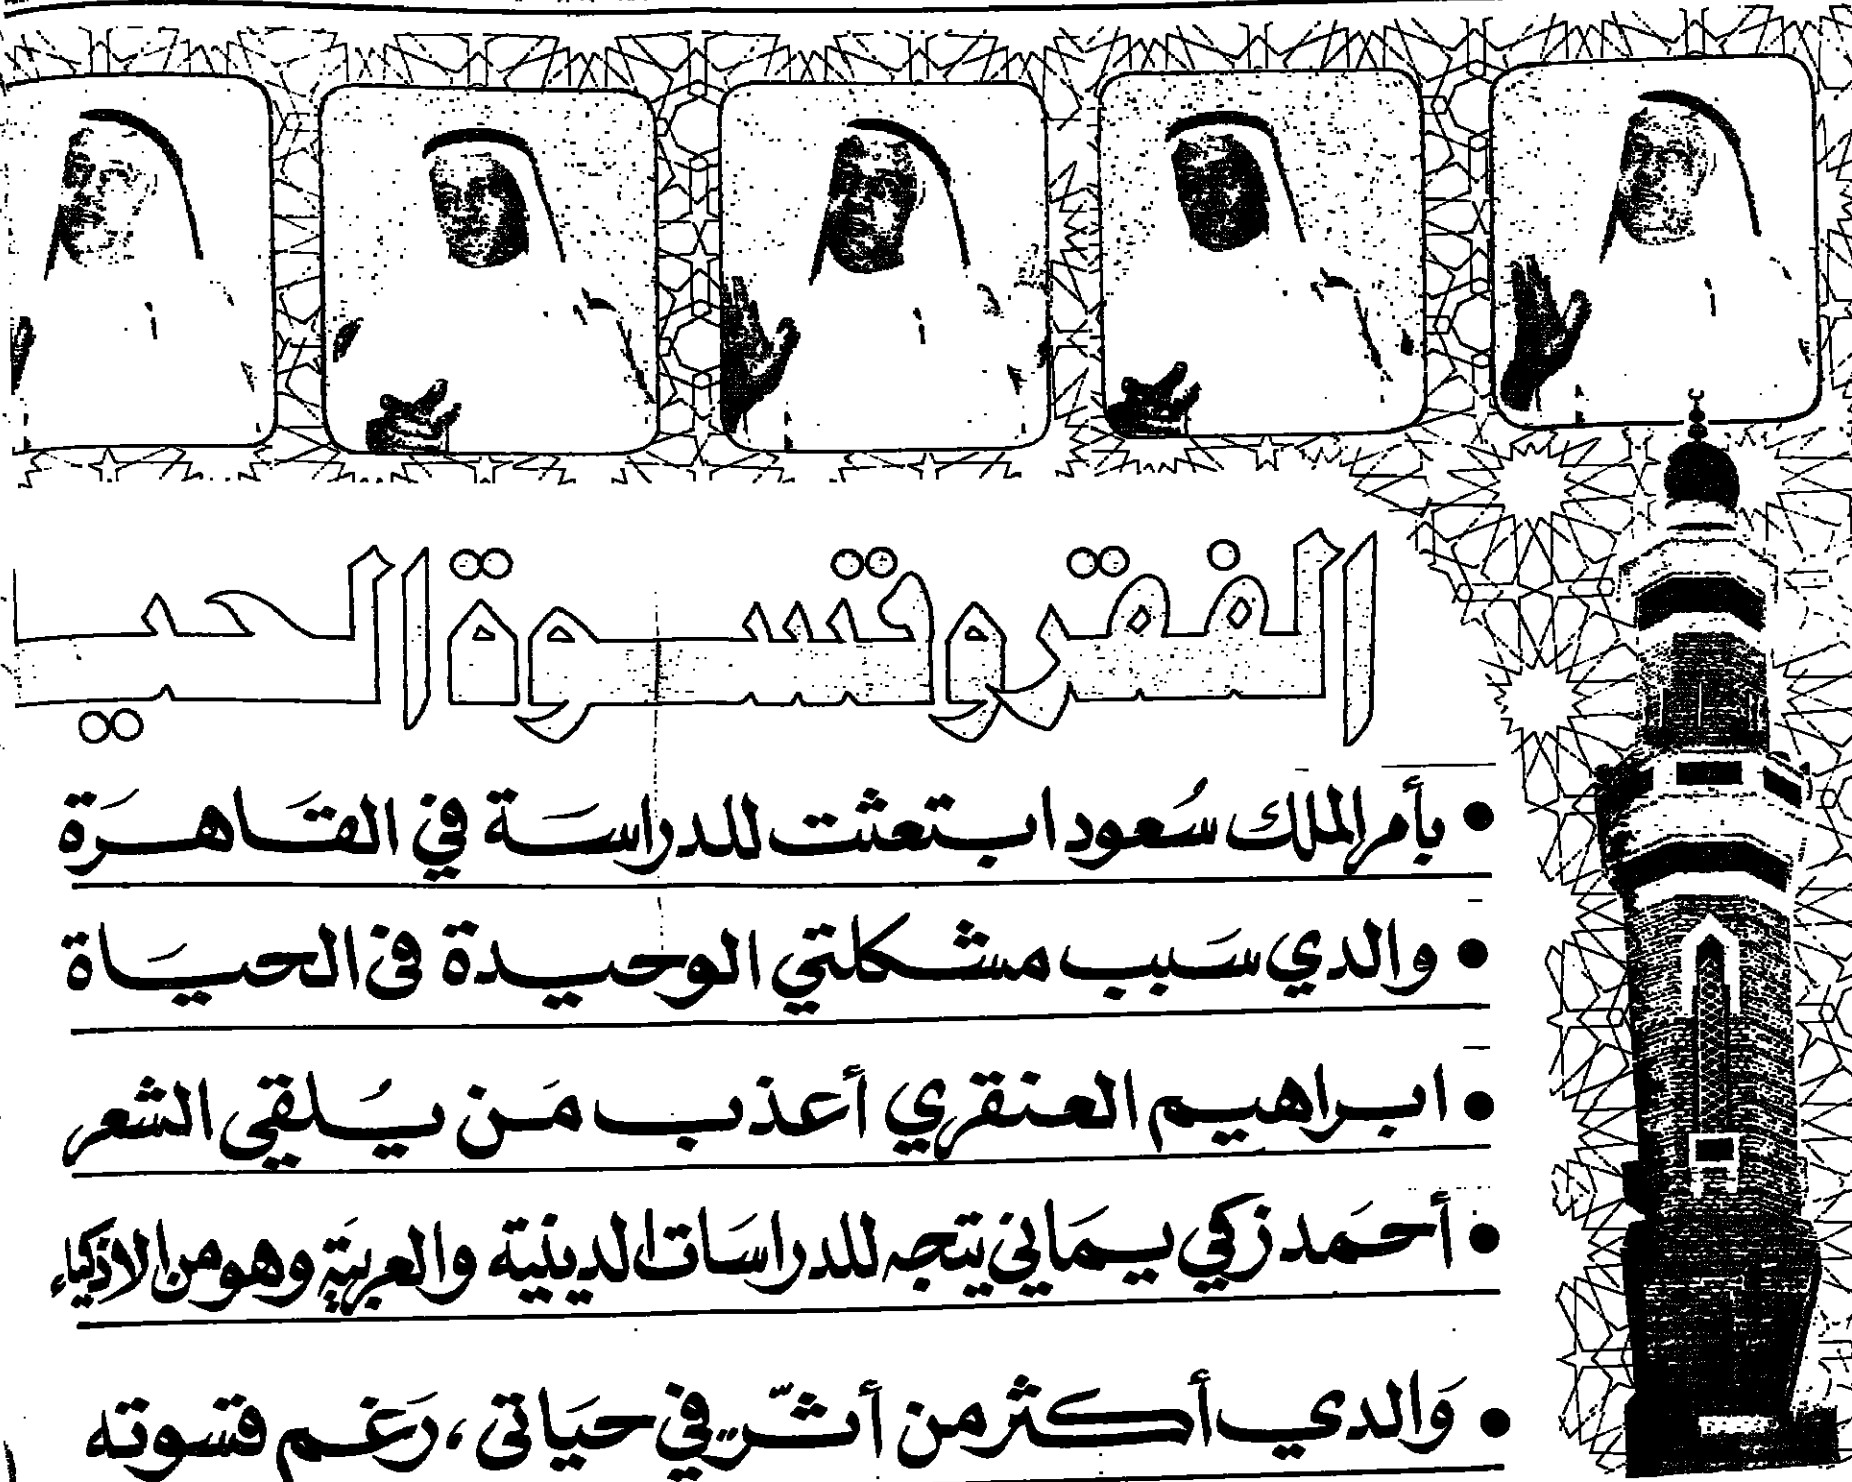 الفقر وقسوة
• بأمر الملك سُعود ابتعثت للدراسة في القاهرة
• والدي سَبب مشكلتي الوحيدة فى الحيَاة
• ابراهيم العنقري أعذب مَن يُلقي الشعر
• أحمَد زكي يمَاني يتجه للدراسَات الدينية والعربيَة وهو من الاذكياء
• وَالدي أكثر من أثّر في حيَاتى ، رَغم قسوته